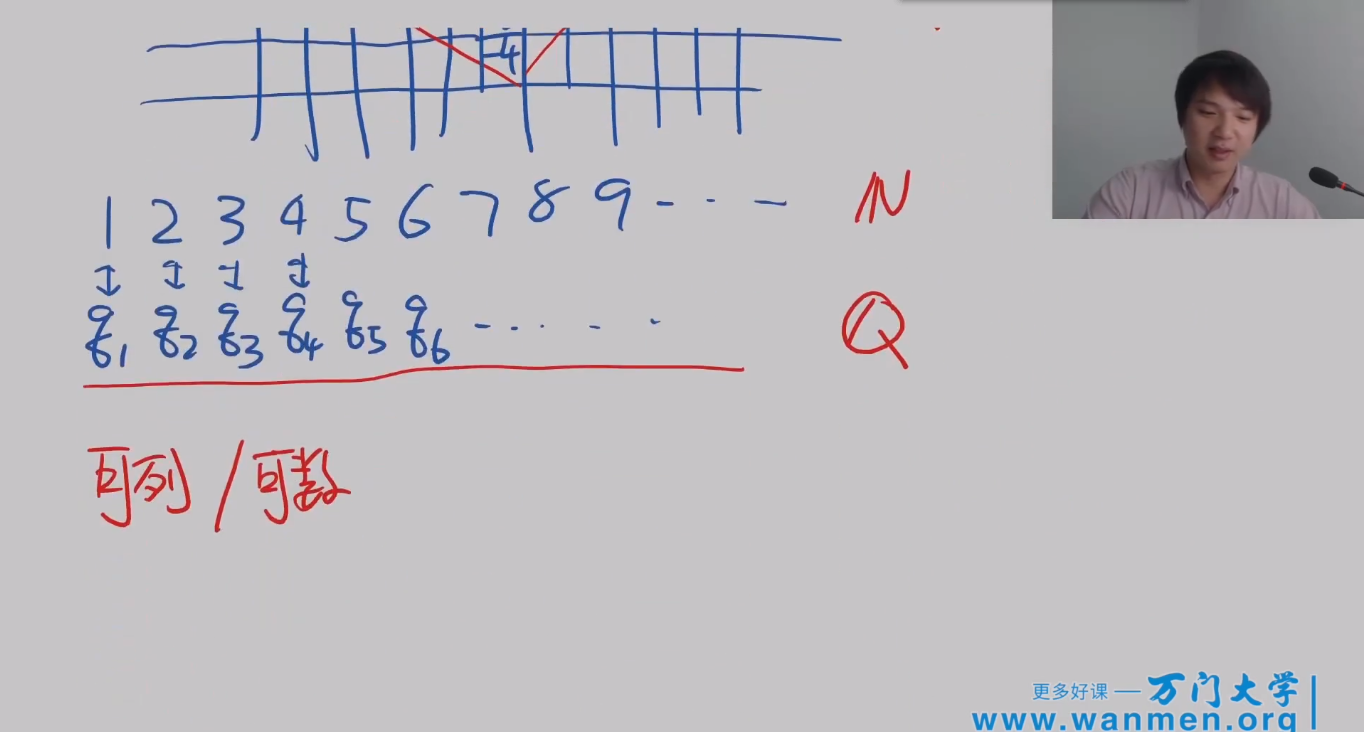 1 2 3 4 5 6 7 8 9 - · · - N
↕ ↕ ↕ ↕
q₁ q₂ q₃ q₄ q₅ q₆ - · · - · Q
可列 / 可数
更多好课 — 万门大学
www.wanmen.org